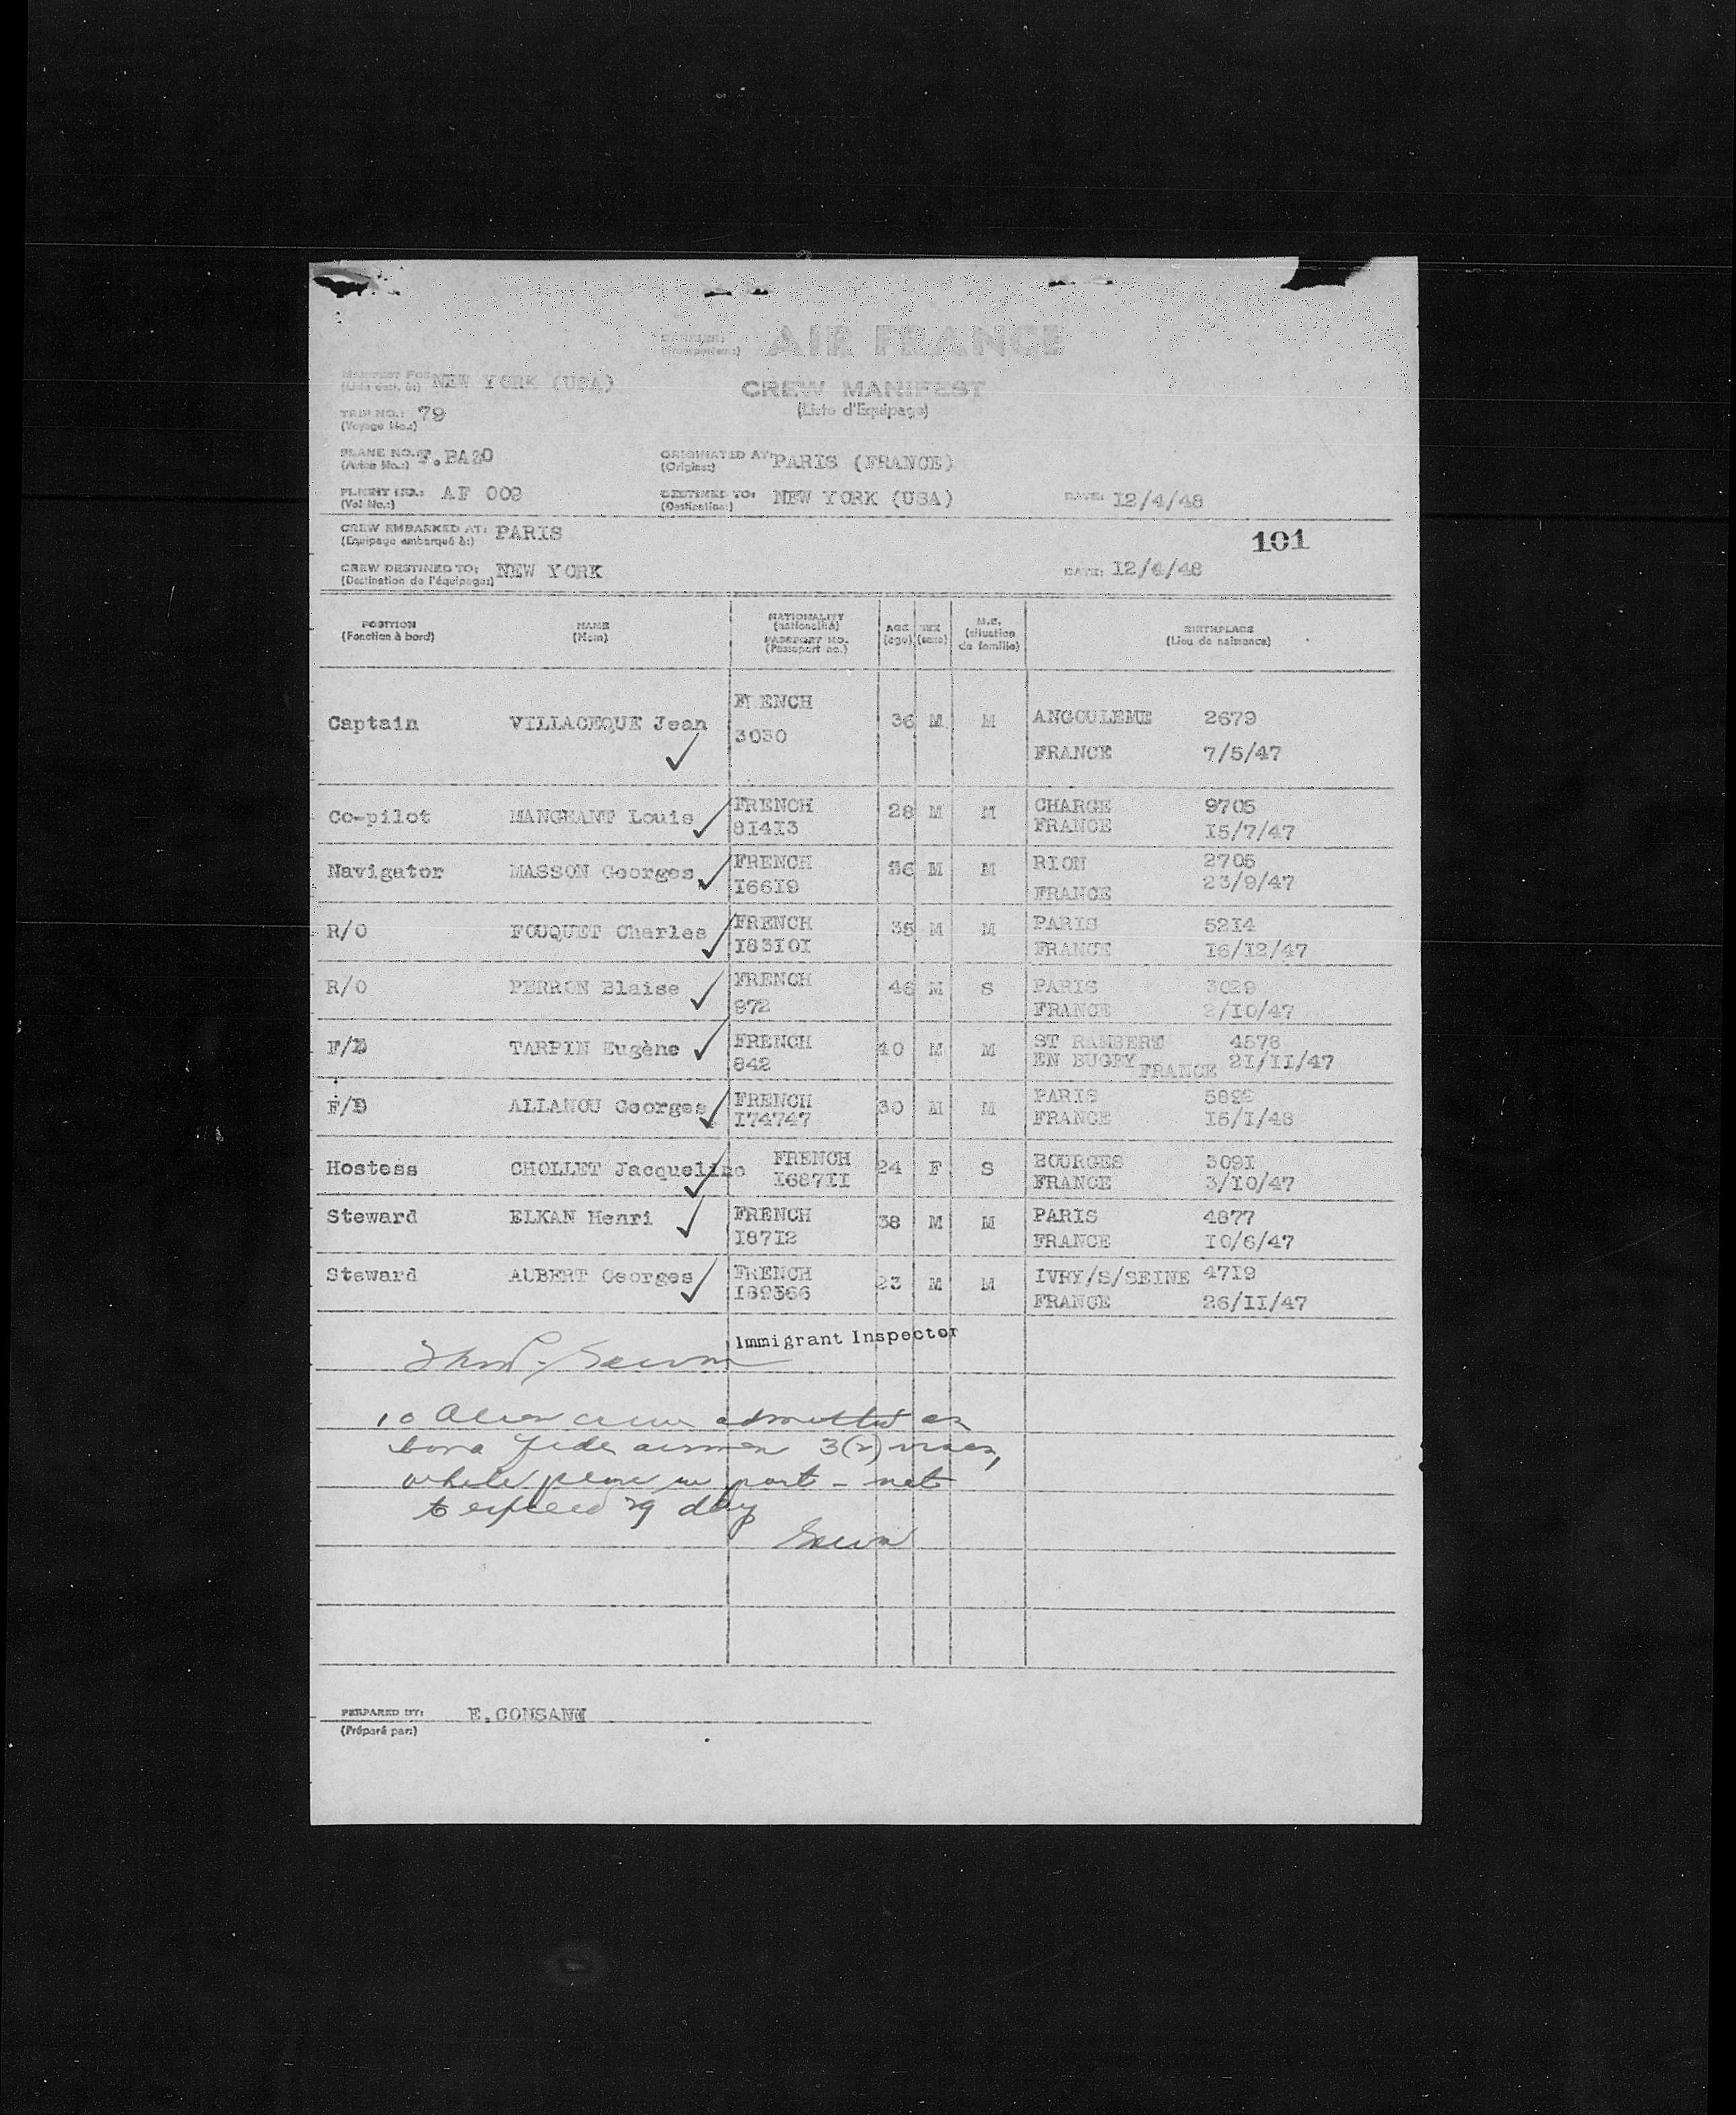 CARRIER: AIR FRANCE
(Transporteur:)
MANIFEST FOR NEW YORK (USA)
CREW MANIFEST
(Liste d'Equipage)
TRIP NO.: 79
(Voyage No.:)
PLANE NO.: F.BAZO
(Avion No.:)
ORIGINATED AT: PARIS (FRANCE)
(Origine:)
FLIGHT NO.: AF 009
(Vol No.:)
DESTINED TO: NEW YORK (USA)
(Destination:)
DATE: I2/4/48
CREW EMBARKED AT: PARIS
(Equipage embarqué à:)
101
CREW DESTINED TO: NEW YORK
(Destination de l'équipage:)
DATE: I2/4/48
POSITION
(Fonction à bord)
NAME
(Nom)
NATIONALITY
(nationalité)
PASSPORT NO.
(Passeport no.)
AGE
(age)
SEX
(sexe)
M.S.
(situation
de famille)
BIRTHPLACE
(Lieu de naissance)
Captain VILLACEQUE Jean FRENCH 3030 36 M M ANGOULEME 2679
FRANCE 7/5/47
Co-pilot MANGEANT Louis FRENCH 8I4I3 28 M M CHARGE 9705
FRANCE I5/7/47
Navigator MASSON Georges FRENCH I66I9 36 M M RION 2705
FRANCE 23/9/47
R/O FOUQUET Charles FRENCH I83I0I 35 M M PARIS 52I4
FRANCE I6/I2/47
R/O PERRON Blaise FRENCH 972 46 M S PARIS 3029
FRANCE 2/I0/47
F/E TARPIN Eugène FRENCH 842 40 M M ST RAMBERT 4578
EN BUGEY FRANCE 2I/II/47
F/E ALLANOU Georges FRENCH I74747 30 M M PARIS 5899
FRANCE I5/I/48
Hostess CHOLLET Jacqueline FRENCH I687II 24 F S BOURGES 309I
FRANCE 3/I0/47
Steward ELKAN Henri FRENCH I87I2 38 M M PARIS 4877
FRANCE I0/6/47
Steward AUBERT Georges FRENCH I89366 23 M M IVRY/S/SEINE 47I9
FRANCE 26/II/47
Immigrant Inspector
10 Alien crew admitted as
bona fide airmen 3(2) visas,
while plane in port - not
to exceed 29 day
PREPARED BY: E.CONSANN
(Préparé par:)